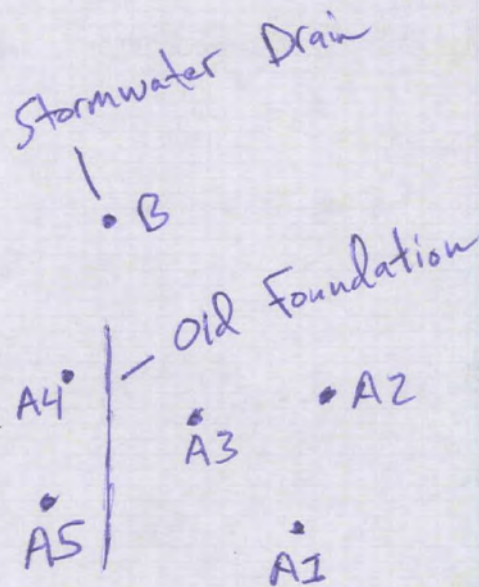 Stormwater Drain
B
Old Foundation
A4
A2
A3
A5
A1